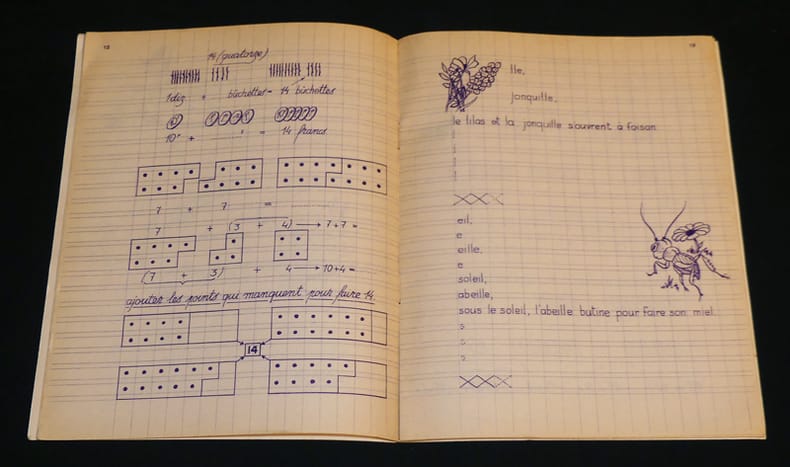 13
14 (quatorze)
1 diz + bûchettes = 14 bûchettes
10F + F = 14 francs
7 + 7 =
7 + (3 + 4) → 7+7=
(7 + 3) + 4 → 10+4=
ajouter les points qui manquent pour faire 14.
14
lle,
jonquille,
le lilas et la jonquille s'ouvrent à foison
l
eil,
e
eille,
e
soleil,
abeille,
sous le soleil, l'abeille butine pour faire son miel.
s
s
s